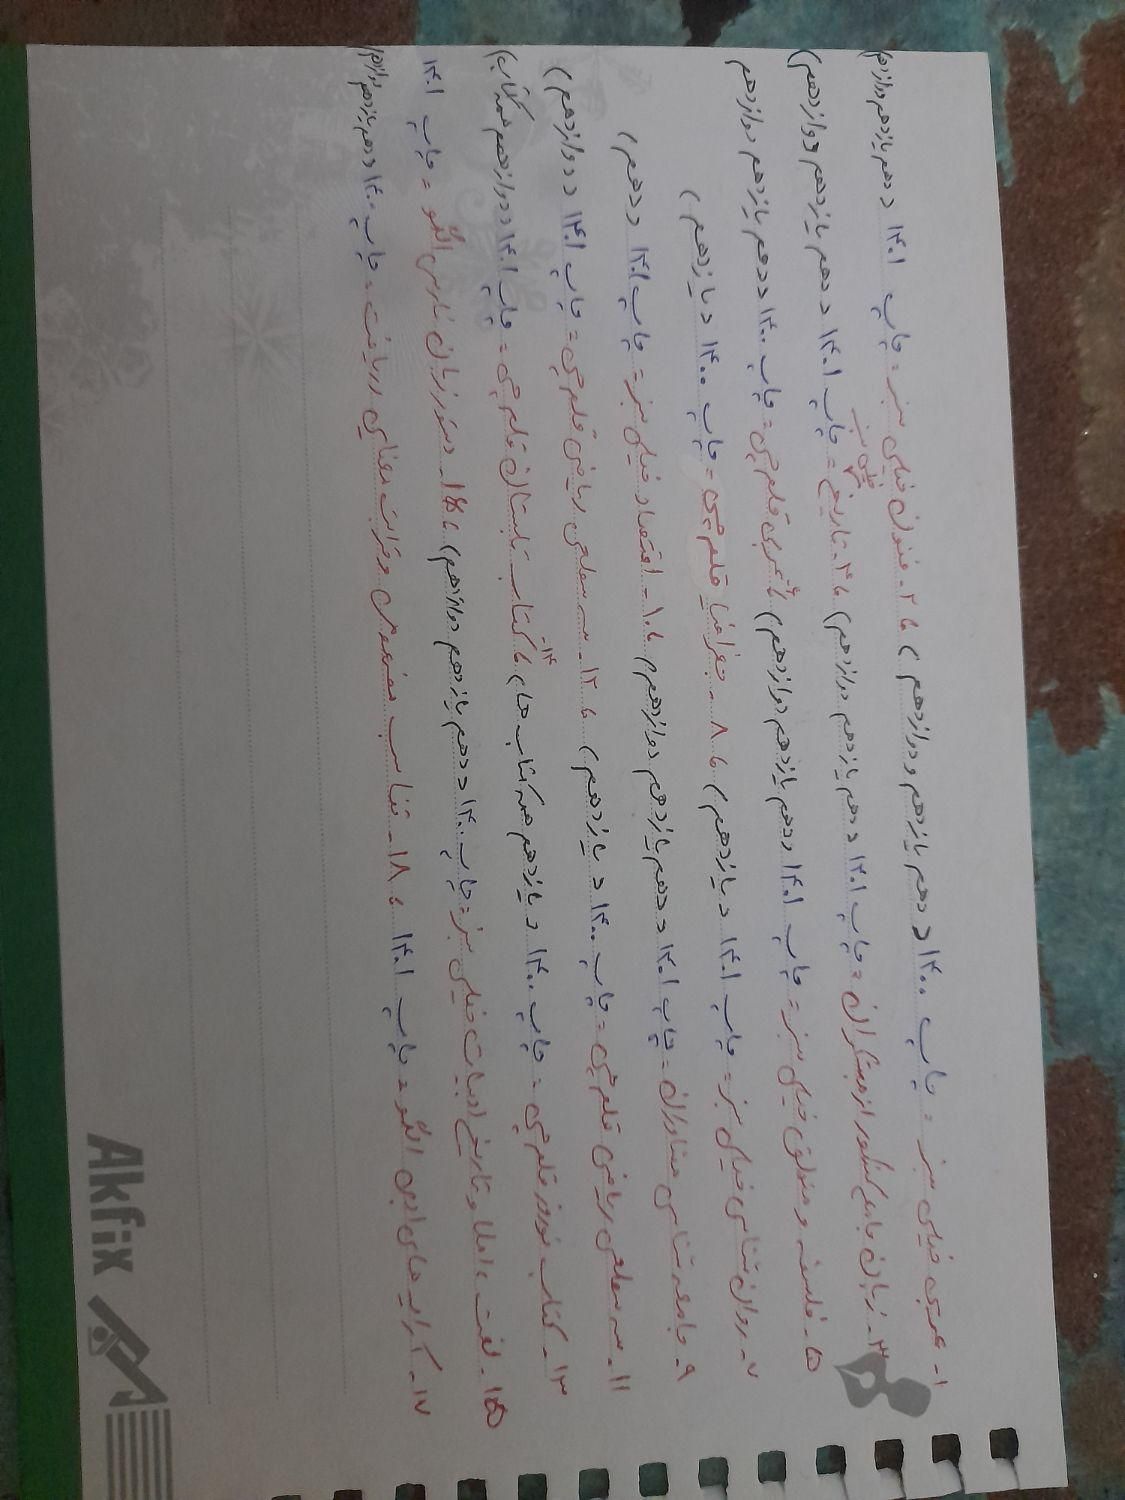 ۱- عربی خیلی سبز = چاپ ۱۴۰۰ ( دهم یازدهم و دوازدهم ) ، ۲- فنون خیلی سبز = چاپ ۱۴۰۱ ( دهم یازدهم دوازدهم)
۳- زبان جامع کنکور از مبتکران = چاپ ۱۴۰۱ ( دهم یازدهم دوازدهم) ، ۴- تاریخ خیلی سبز = چاپ ۱۴۰۱ ( دهم یازدهم دوازدهم )
۵- فلسفه و منطق خیلی سبز = چاپ ۱۴۰۱ ( دهم یازدهم دوازدهم) ، ۶- عربی قلم چی = چاپ ۱۴۰۰ ( دهم یازدهم دوازدهم
۷- روان شناسی خیلی سبز = چاپ ۱۴۰۱ ( یازدهم ) ، ۸- جغرافیا قلم چی = چاپ ۱۴۰۰ ( یازدهم )
۹- جامعه شناسی مشاوران = چاپ ۱۴۰۱ ( دهم یازدهم دوازدهم) ، ۱۰- اقتصاد خیلی سبز = چاپ ۱۴۰۱ ( دهم )
۱۱- سه سطحی ریاضی قلم چی = چاپ ۱۴۰۰ ( یازدهم ) ، ۱۲- سه سطحی ریاضی قلم چی = چاپ ۱۴۰۱ ( دوازدهم )
۱۳- کتاب نوروز قلم چی = چاپ ۱۴۰۰ ( یازدهم همه کتاب ها ) ، ۱۴- کتاب تابستان قلم چی = چاپ ۱۴۰۱ ( دوازدهم همه کتاب )
۱۵- لغت ، املا و تاریخ ادبیات خیلی سبز = چاپ ۱۴۰۰ ( دهم یازدهم دوازدهم) ، ۱۶- دستور زبان فارسی الگو = چاپ ۱۴۰۱
۱۷- آرایه های ادبی الگو = چاپ ۱۴۰۱ ، ۱۸- تناسب مفهومی و قرابت معنایی دریافت = چاپ ۱۴۰۰ ( دهم یازدهم دوازدهم)
Akfix